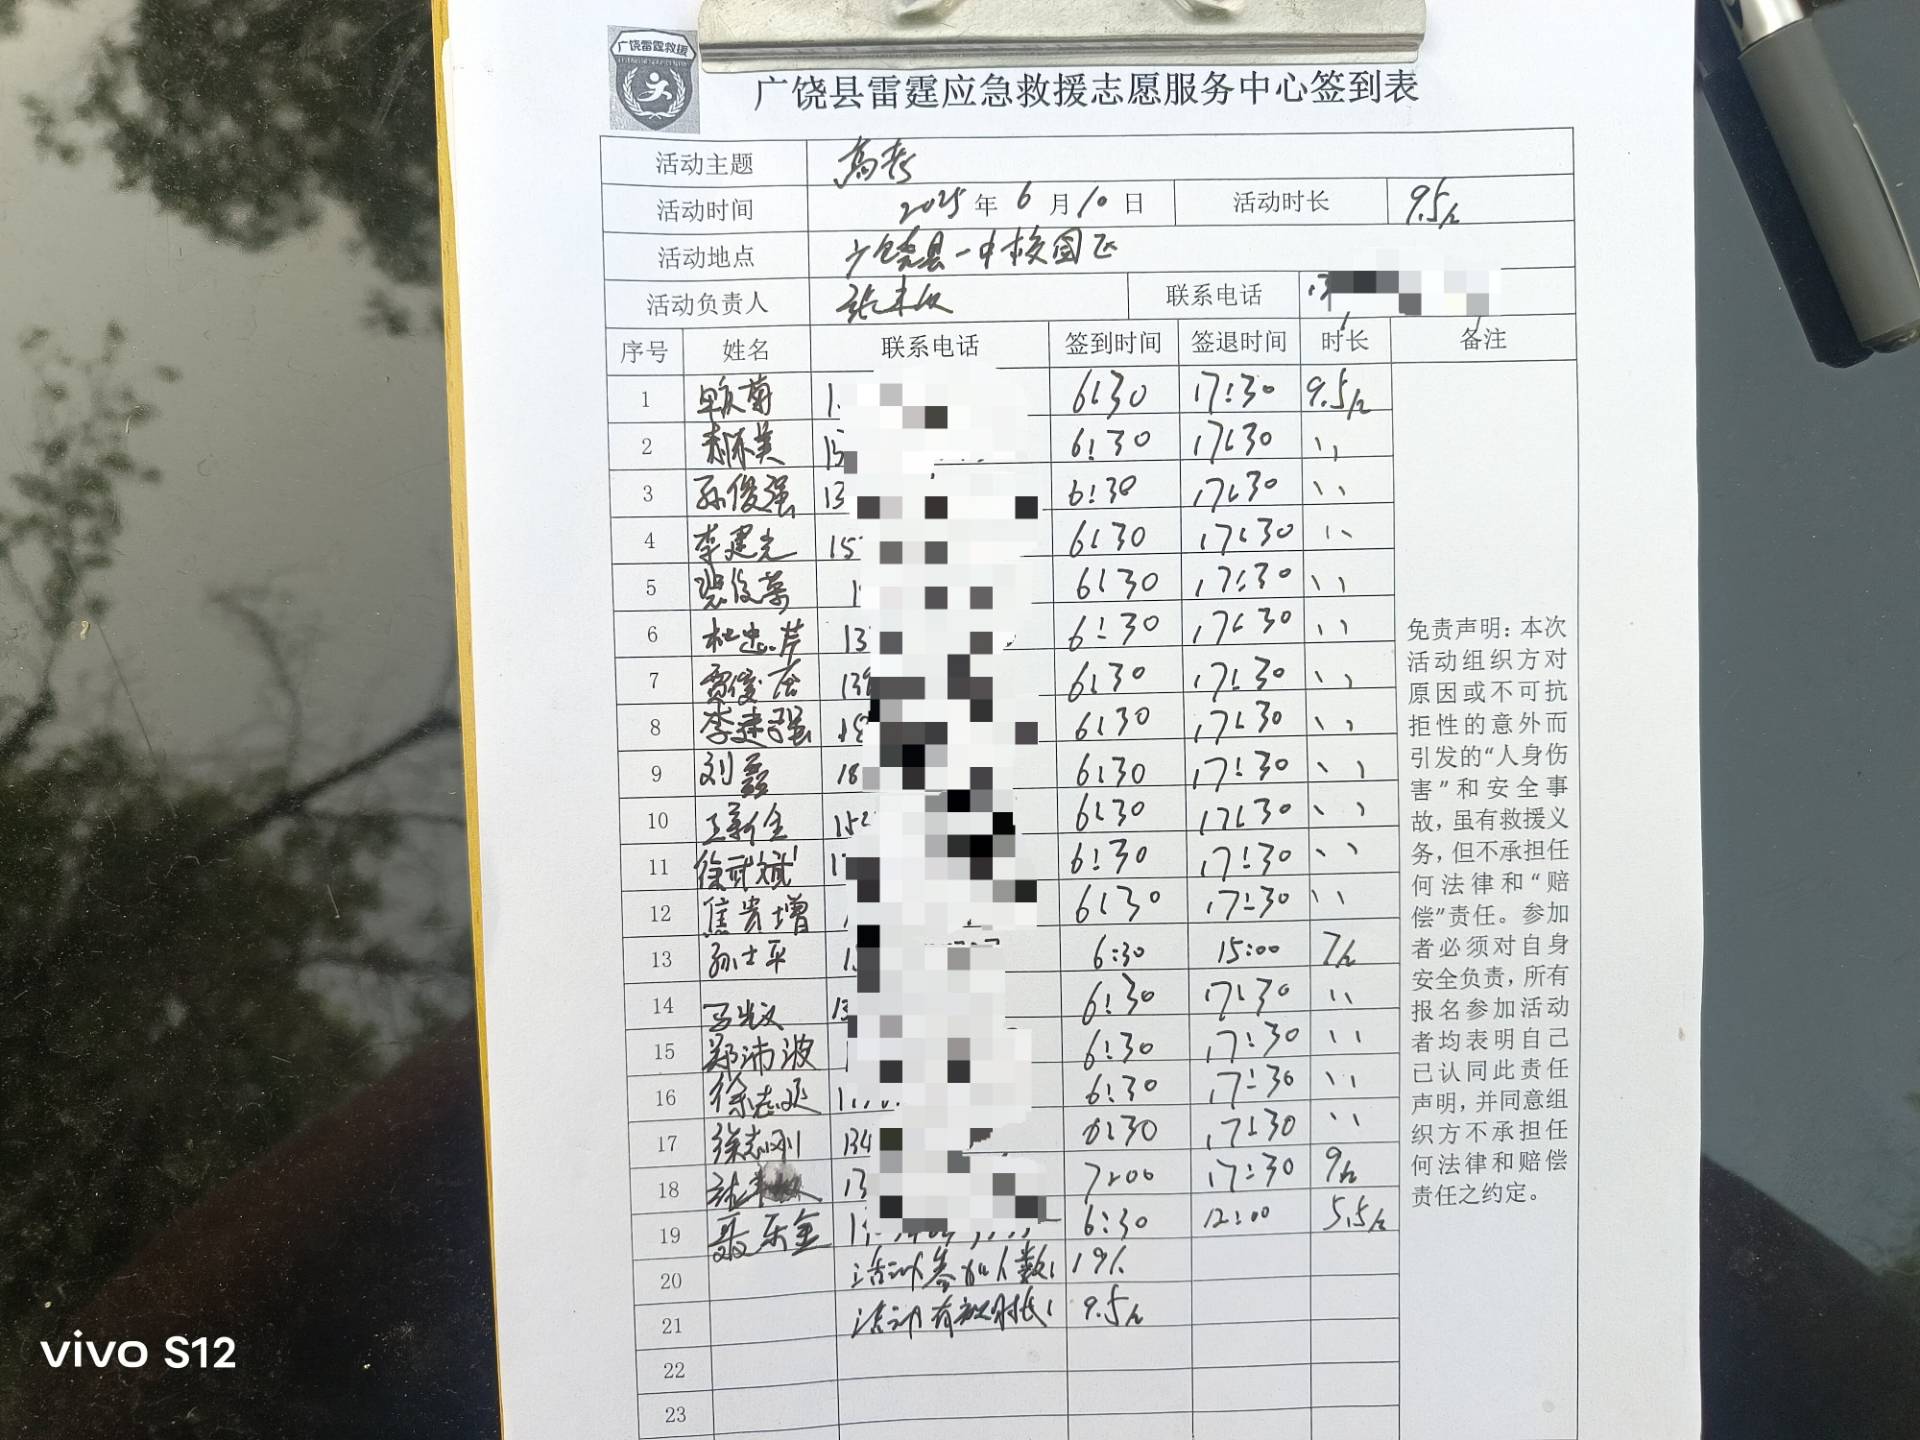 广饶雷霆救援
广饶县雷霆应急救援志愿服务中心签到表
活动主题 高考
活动时间 2025年6月10日 活动时长 9.5h
活动地点 广饶县一中校园区
活动负责人 联系电话
序号 姓名 联系电话 签到时间 签退时间 时长 备注
1 6:30 17:30 9.5h
2 15 6:30 17:30 、、
3 孙俊强 13 6:30 17:30 、、
4 李建光 15 6:30 17:30 、、
5 6:30 17:30 、、
6 杜忠芹 13 6:30 17:30 、、
7 贾俊 139 6:30 17:30 、、
8 李建强 6:30 17:30 、、
9 刘磊 18 6:30 17:30 、、
10 王新全 152 6:30 17:30 、、
11 徐武斌 6:30 17:30 、、
12 焦贵增 6:30 17:30 、、
13 孙士平 6:30 15:00 7h
14 13 6:30 17:30 、、
15 郑沛波 6:30 17:30 、、
16 徐志 6:30 17:30 、、
17 徐志刚 134 6:30 17:30 、、
18 13 7:00 17:30 9h
19 聂乐金 6:30 12:00 5.5h
20 活动参加人数: 19人
21 活动有效时长: 9.5h
22
23
免责声明：本次
活动组织方对
原因或不可抗
拒性的意外而
引发的“人身伤
害”和安全事
故，虽有救援义
务，但不承担任
何法律和“赔
偿”责任。参加
者必须对自身
安全负责，所有
报名参加活动
者均表明自己
已认同此责任
声明，并同意组
织方不承担任
何法律和赔偿
责任之约定。
vivo S12